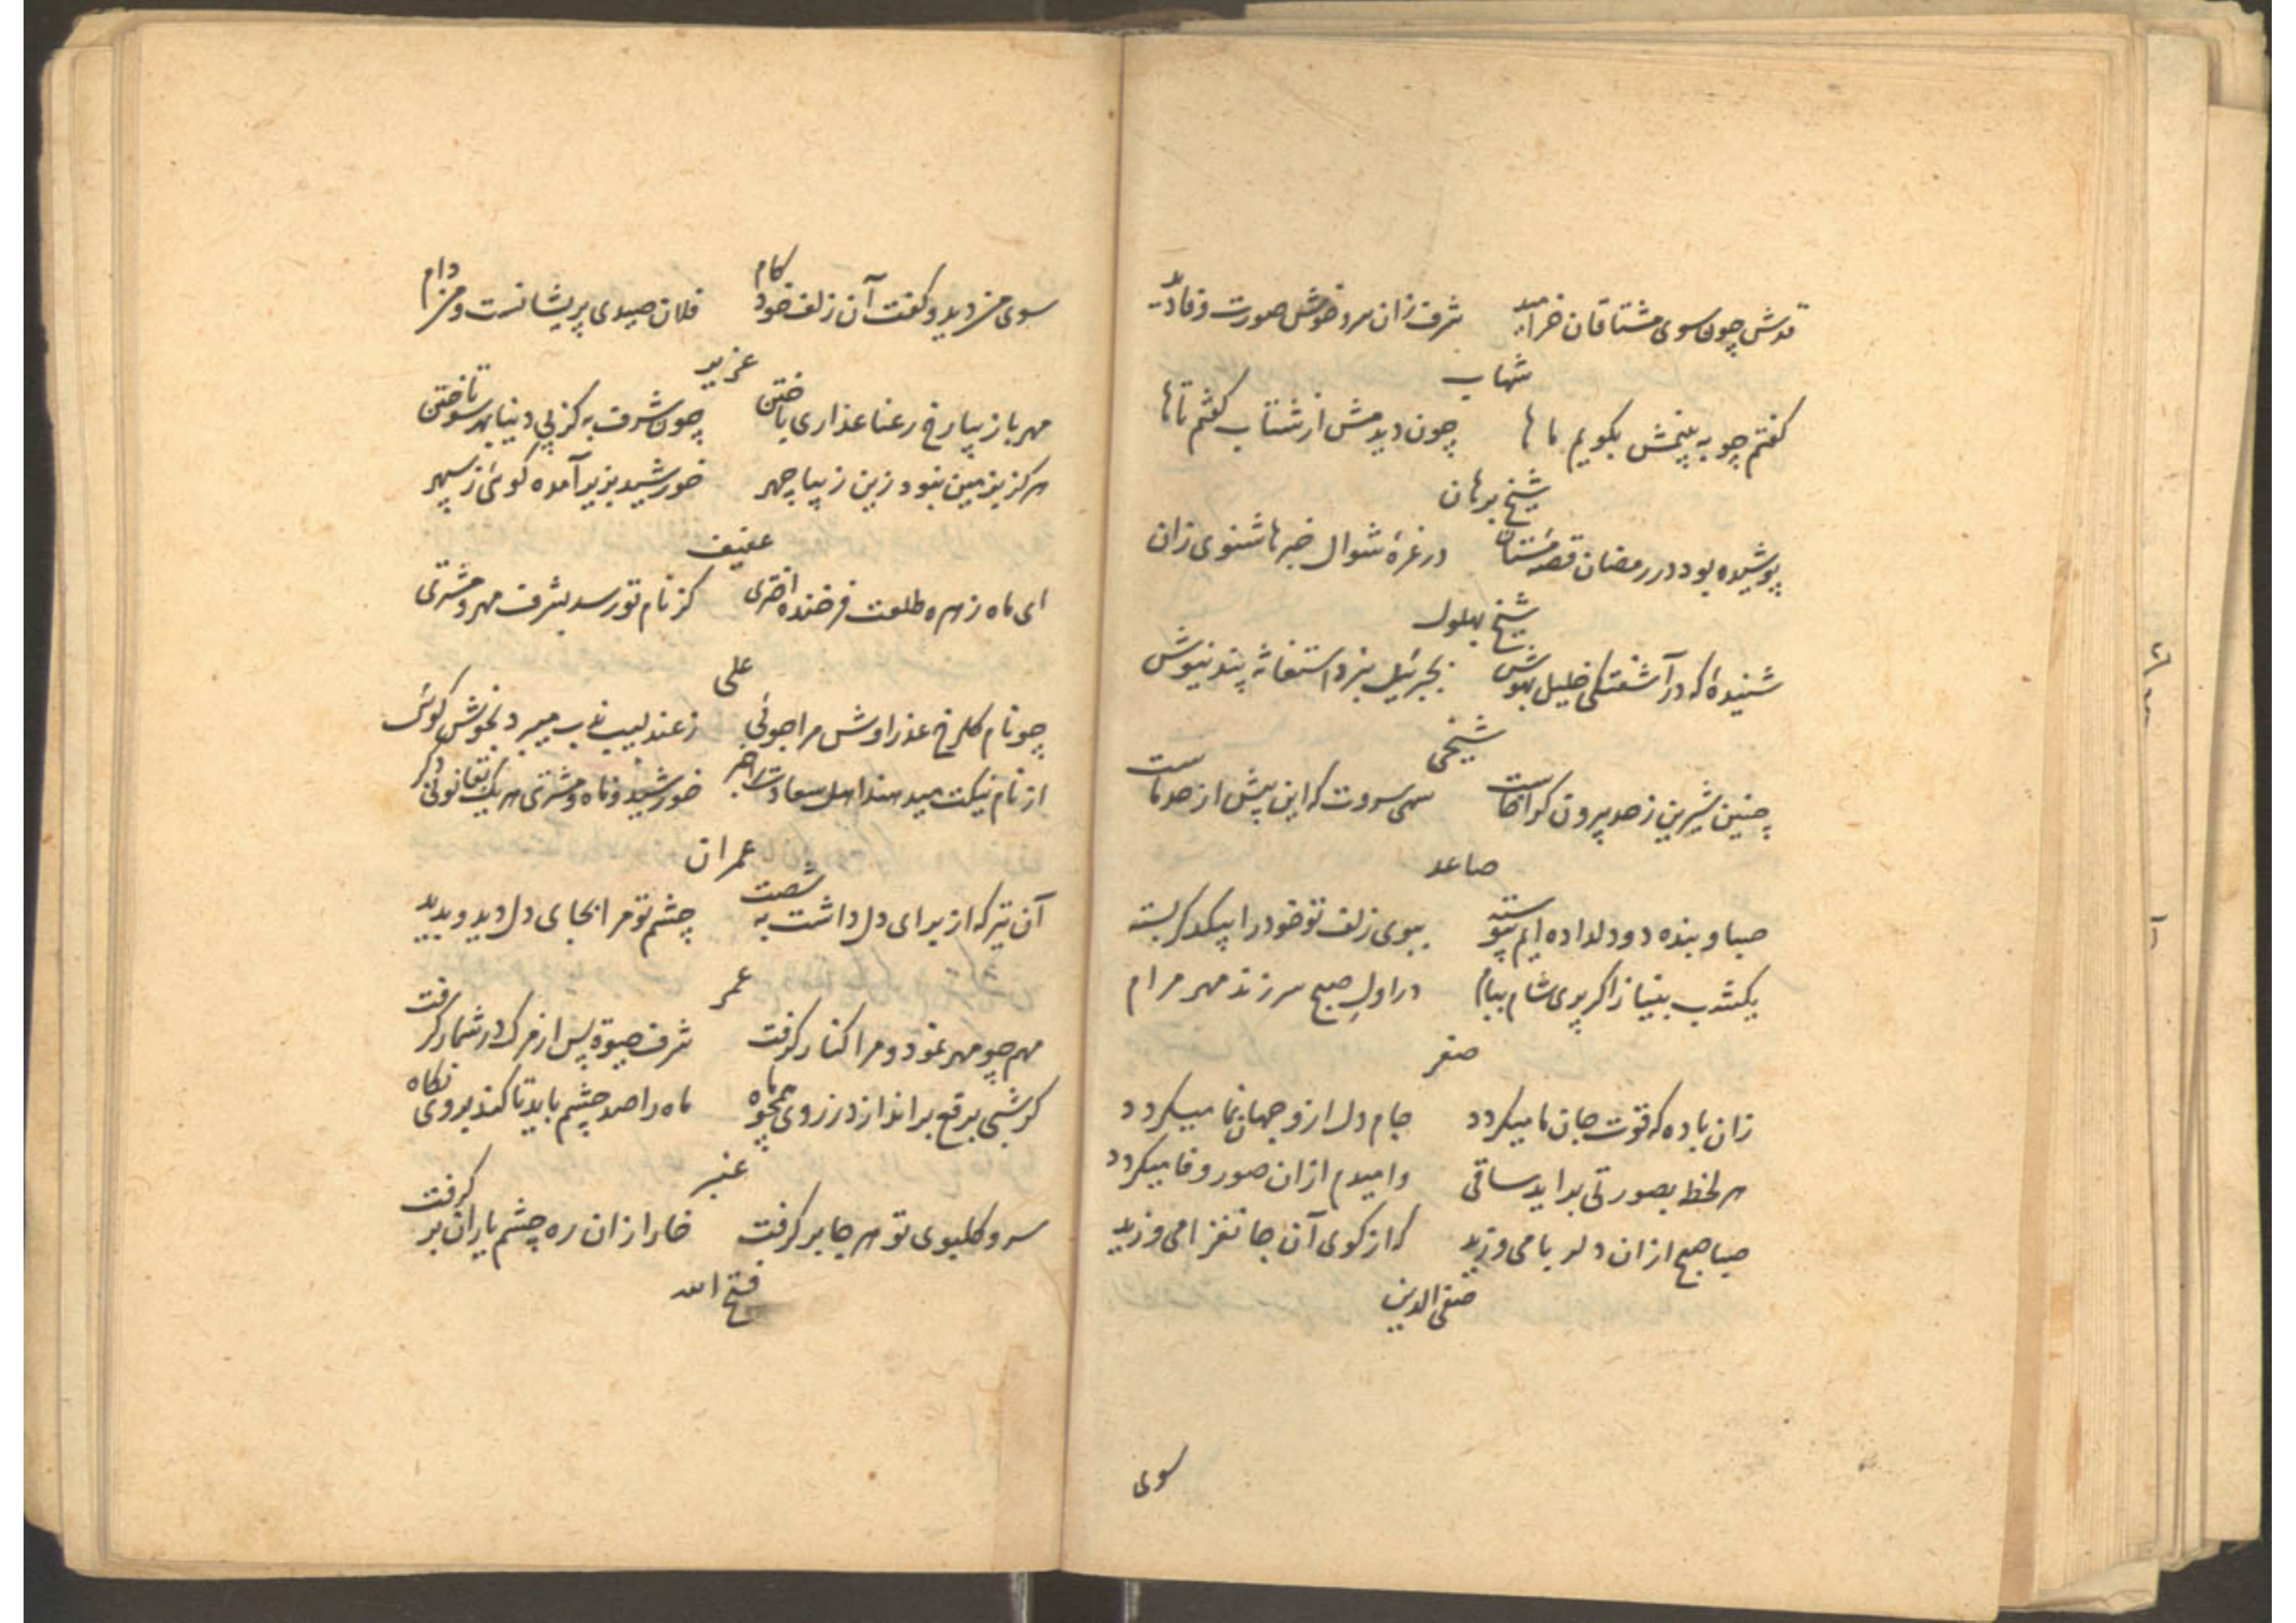 قدش چون سوی مشتاقان خرامید شرف زان سرو خوش صورت وفا دید
شهاب
گفتم چو به بینمش بگویم ماها چون دیدمش از شتاب گفتم تاها
شیخ برهان
پوشیده بود در رمضان قصه مستان در غرهٔ شوال خبرها شنوی زان
شیخ بهلول
شنیدهٔ که در آشفتگی خلیل بهوش بجبرئیل نبرد استغاثه پند نیوش
شیخی
چنین شیرین ز حد بیرون کراخاست سهی سروت که این پیش از حد ماست
صاعد
صبا و بنده دو دلداده ایم پیوسته ببوی زلف تو خود را بیکدگر بسته
یکشب بنیاز اگر بری شام بیام در اول صبح سر زند مهر مرام
صفر
زان باده که قوت جان ما میگردد جام دل ازو جهان نما میگردد
هر لحظ بصورتی براید ساقی وامیدم ازان صور وفا میگردد
صبا صبح ازان دلربا می وزید که از کوی آن جانفزا می وزید
صفی الدین
سوی
سوی من دید و گفت آن زلف خود کام فلان صیدی پریشانست و من دام
عزیز
مهر با زیبا رخ رعنا عذاری باختن چون شرف به کز پی دنیا بهر سو تاختن
هرگز بزمین نبود زین زیبا چهر خورشید بزیر آمده گوئی ز سپهر
عفیف
ای ماه زهره طلعت فرخنده اختری کز نام تو رسد بشرف مهر و مشتری
علی
چو نام گلرخ عذراوش مرا جوئی ز عندلیب نه ب میبرد بخوش گوئی
از نام نیکت میدهند اهل سعادت را خبر خورشید و ماه و مشتری هر یک بقانونی دگر
عمران
آن تیر که از برای دل داشت به شصت چشم تو مرا بجای دل دید و بدید
عمر
مهم چو مهر نمود و مرا کنار گرفت شرف حیوة پس از مرگ در شمار گرفت
گر شبی برقع براندازد ز روی همچو ماه ماه را صد چشم باید تا کند بروی نگاه
عنبر
سرو گلبوی تو هر جا بر گرفت خار ازان ره چشم یاران بر گرفت
فتح الله